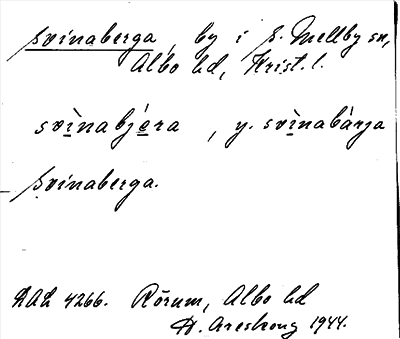 Svinaberga, by i S. Mellby sn,
Albo hd, Krist. l.
svìnabjèra, y. svìnabàrja
Svinaberga.
LAL 4266. Rörum, Albo hd
H. Areskoug 1944.